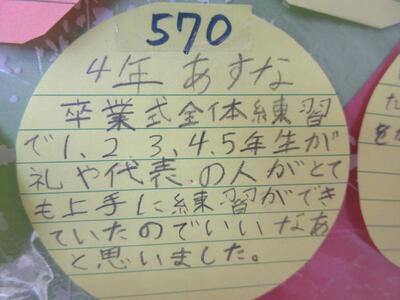 570
4年 あすな
卒業式全体練習
で1、2、3、4、5年生が
礼や代表の人がとて
も上手に練習ができ
ていたのでいいなあ
と思いました。